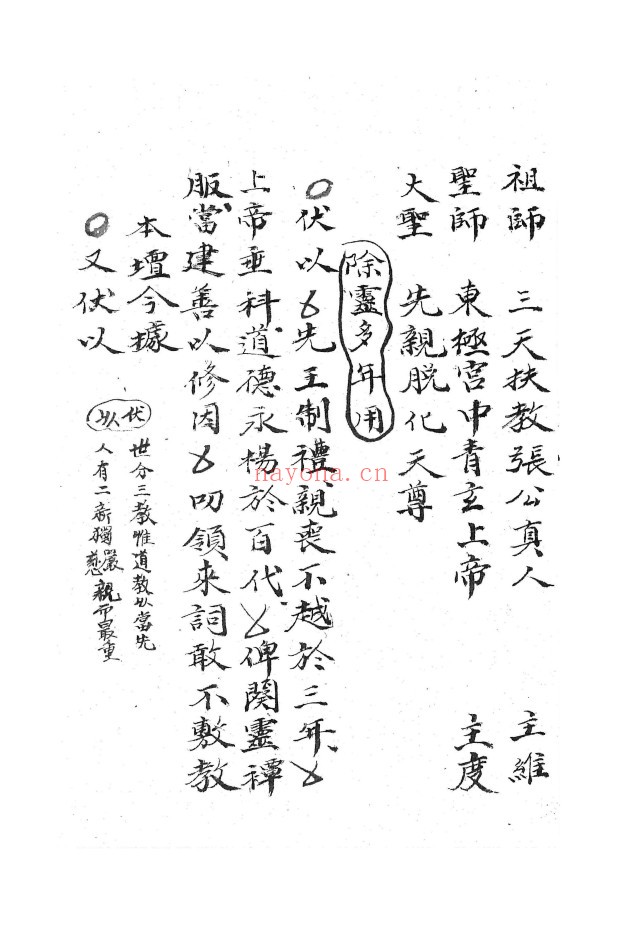 祖師 三天扶教張公真人 主維
聖師 東極宮中青玄上帝 主度
大聖 先親脫化天尊
除靈多年用
○伏以〥先王制禮親喪不越於三年〥
上帝垂科道德永楊於百代〥俾闋靈禫
服當建善以修因〥叨領來詞敢不敷教
本壇今據
○又伏以
伏以 世分三教惟道教以當先
人有二 獨嚴慈親而最重
nayona.cn